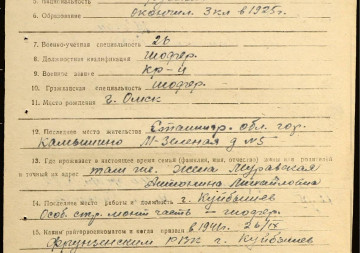 6. Образование окончил 3 кл в 1925 г.
7. Военно-учетная специальность 26
8. Должностная квалификация шофер.
9. Военное звание кр-ц
10. Гражданская специальность шофер.
11. Место рождения г. Омск
12. Последнее место жительства обл. гор.
Камышино М-Зеленая д №5
13. Где проживает в настоящее время семья (фамилия, имя, отчество) жены или родителей
и точный их адрес там же. Жена Муравская
Антонина Михайловна
14. Последнее место работы и должность г. Куйбышев
Особ. стр. монт часть — шофер.
15. Каким райвоенкоматом и когда призван в 1941 г.
Фрунзенским РВК г. Куйбышев